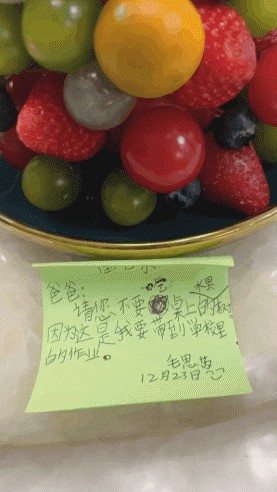 爸爸:
吃 水果
请您不要桌上的
因为这是我要带到学校里
的作业。
毛思
12月23日